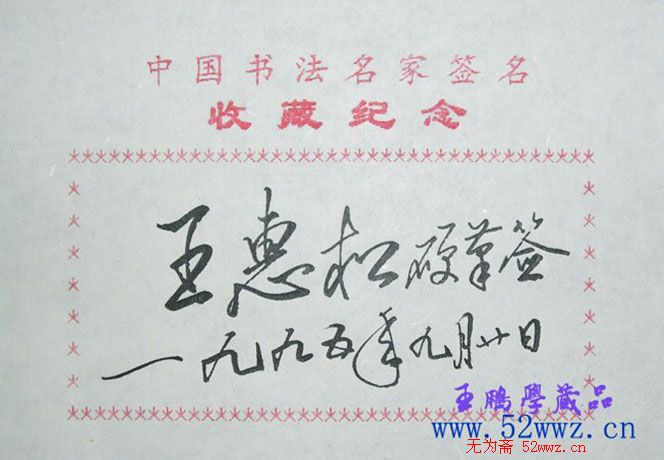 中国书法名家签名
收藏纪念
王惠松硬筆签
一九九五年九月廿日
王鵬學藏品
www.52wwz.cn
无为斋 52wwz.cn